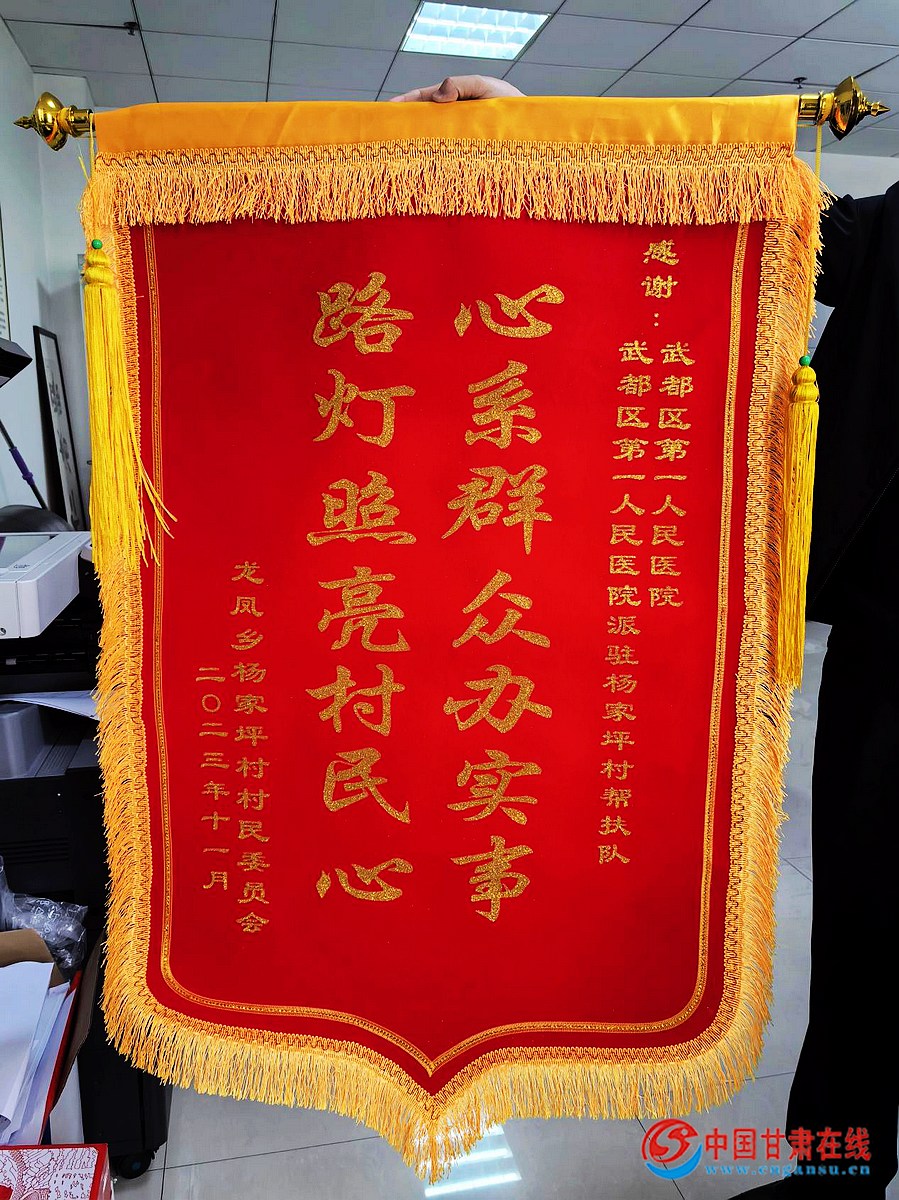 感谢：
武都区第一人民医院
武都区第一人民医院派驻杨家坪村帮扶队
心系群众办实事
路灯照亮村民心
龙凤乡杨家坪村村民委员会
二〇二三年十一月
中国甘肃在线
www.cngansu.cn